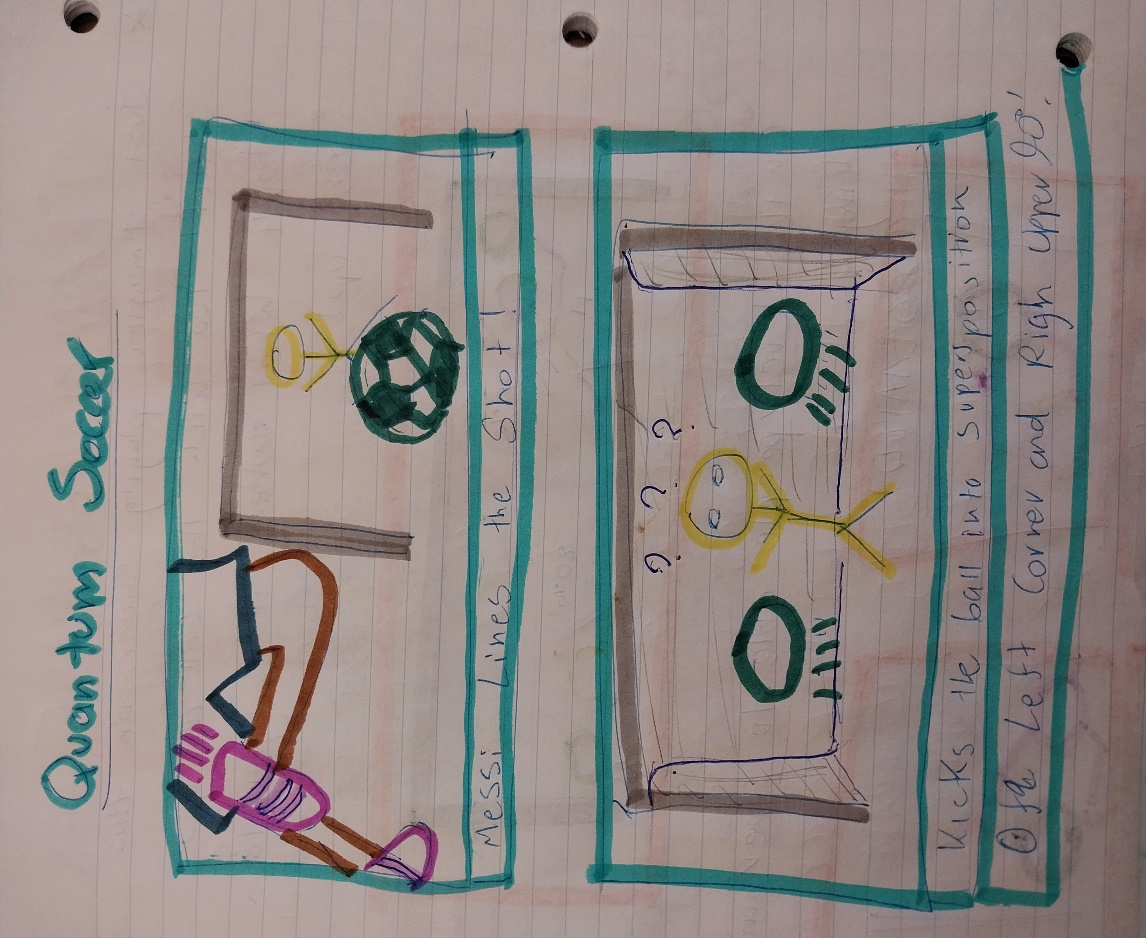 Quantum Soccer
Messi Lines the Shot!
? ? ?
Kicks the ball into superposition
Of the Left Corner and Righ upper 90'!